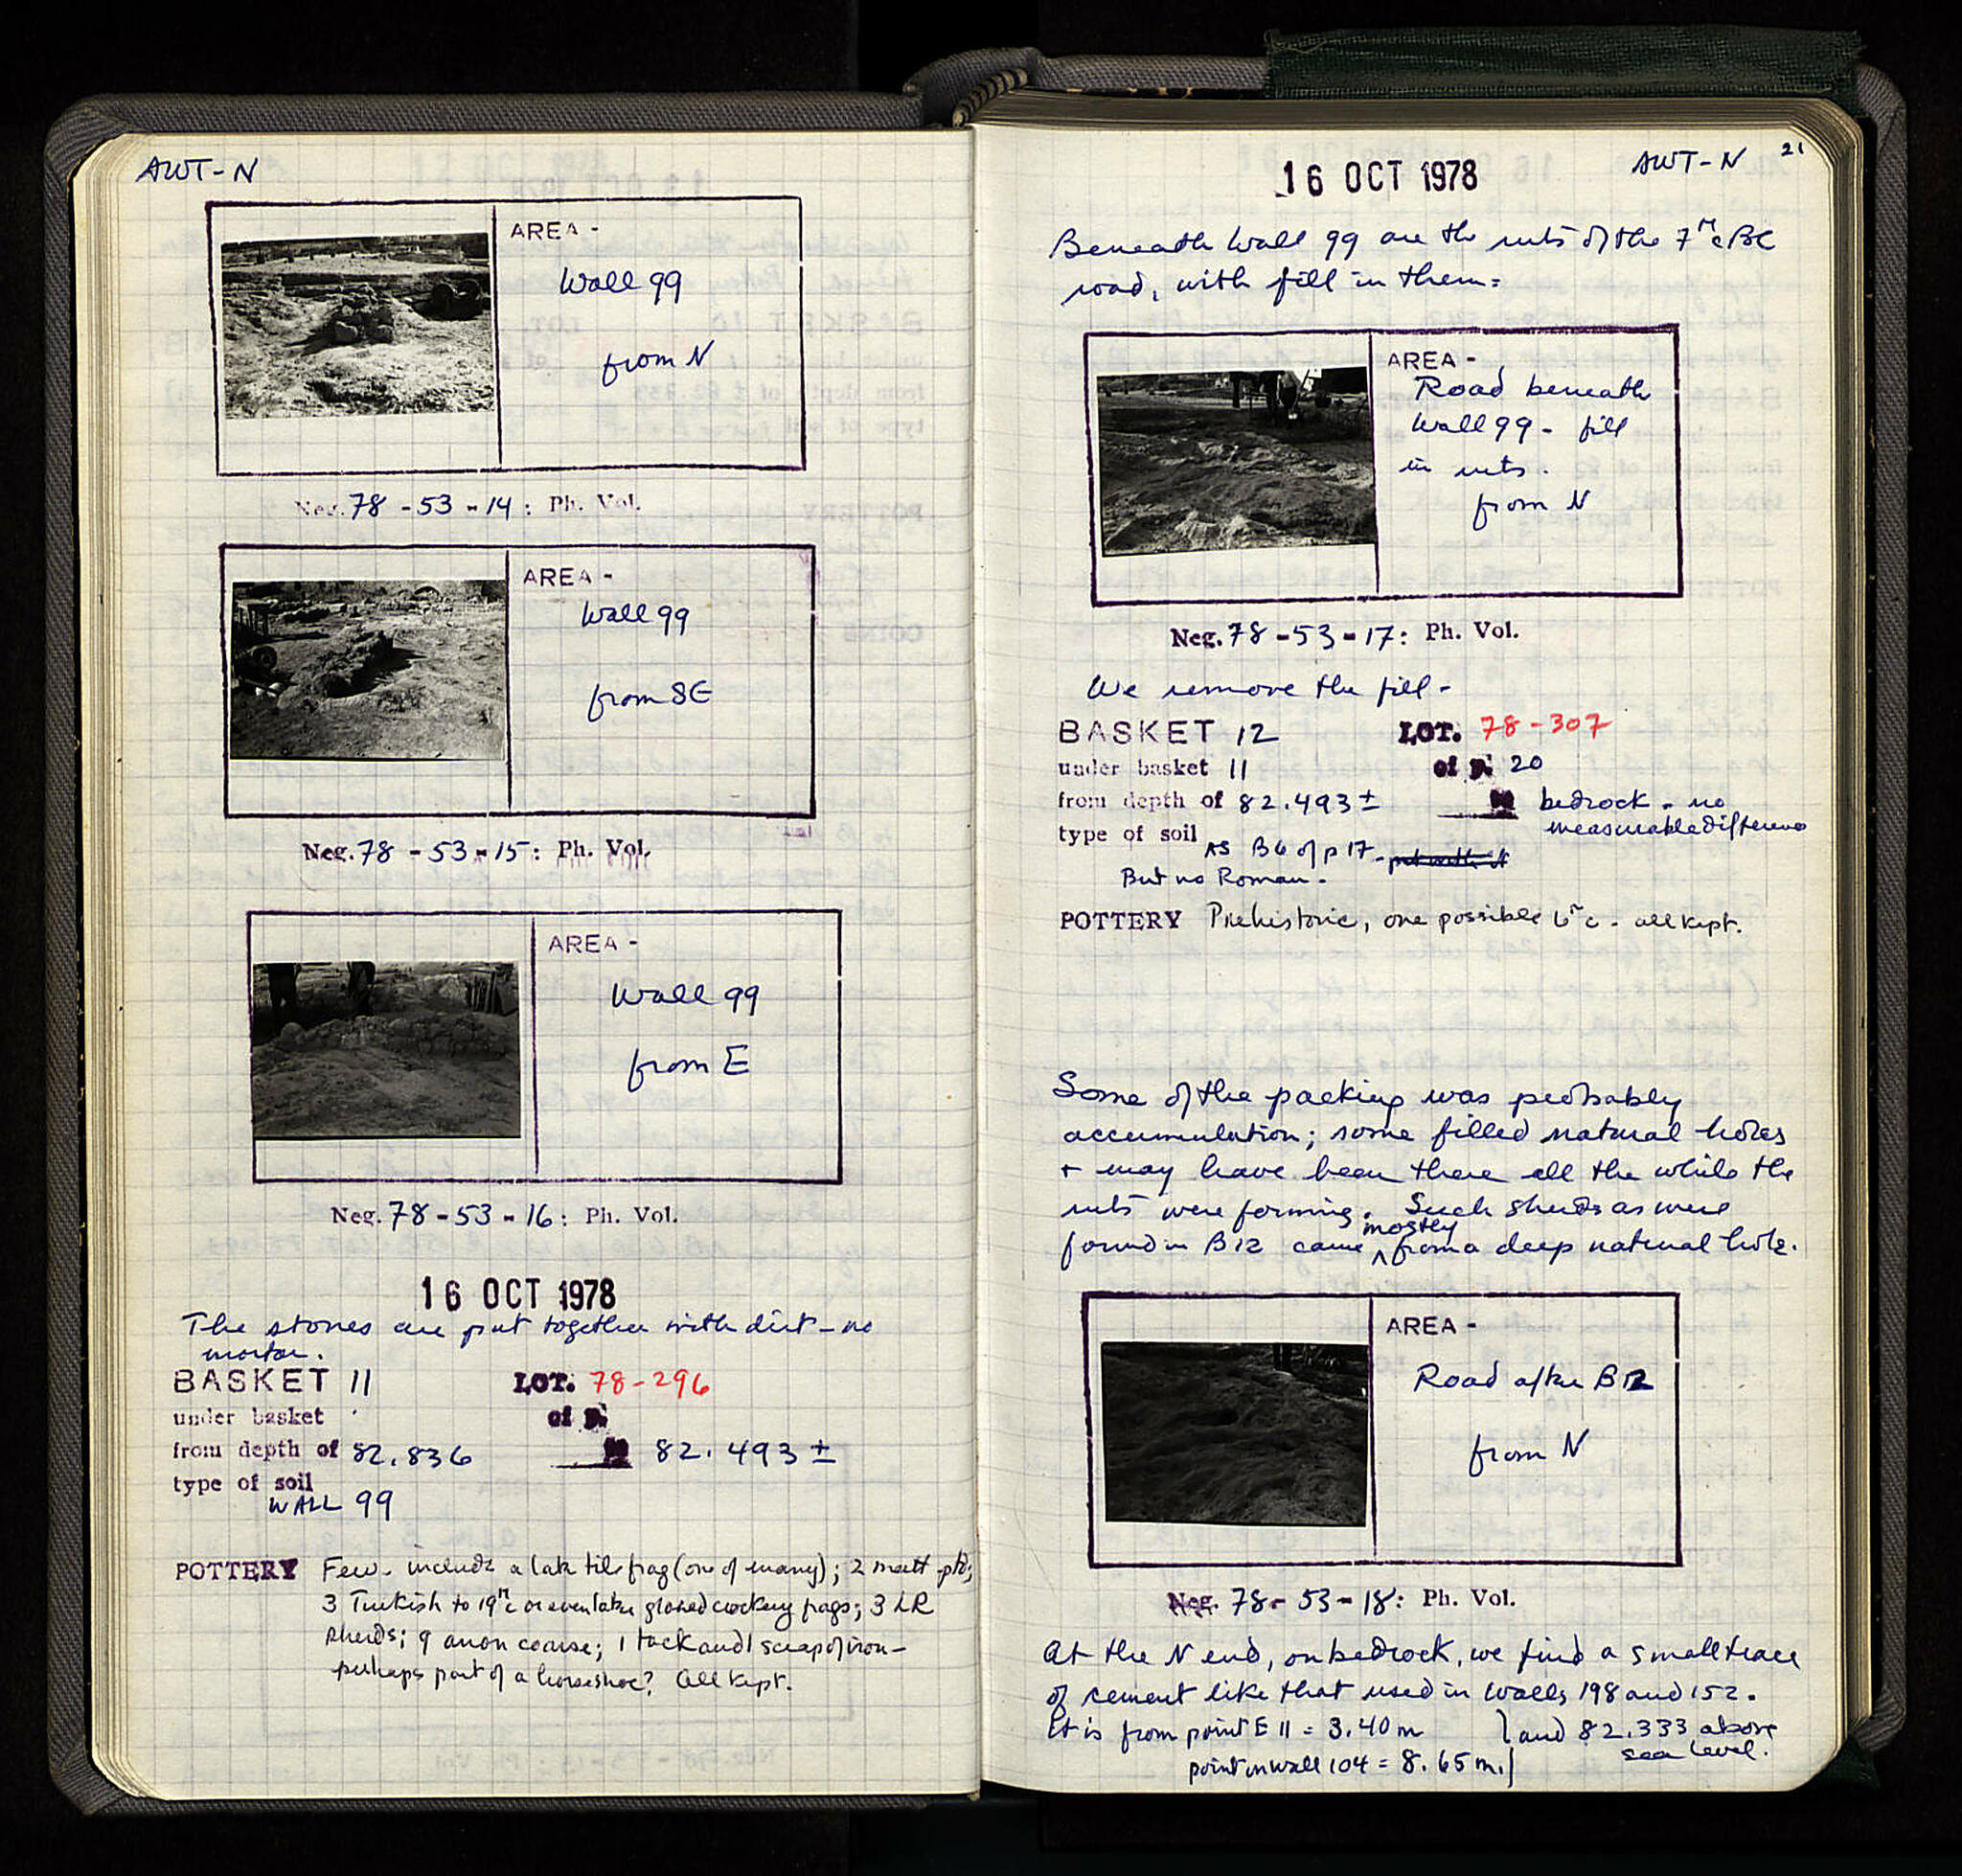 AWT-N
AREA -
Wall 99
from N
Neg. 78-53-14: Ph. Vol.
AREA -
Wall 99
from SE
Neg. 78-53-15: Ph. Vol.
AREA -
Wall 99
from E
Neg. 78-53-16: Ph. Vol.
16 OCT 1978
The stones are put together with dirt - no
mortar.
BASKET 11 LOT. 78-296
under basket of p.
from depth of 82.836 82.493 ±
type of soil
WALL 99
POTTERY Few. include a late tile frag (one of many); 2 matt-ptd;
3 Turkish to 19th c or even later glazed crockery frags; 3 LR
sherds; 9 anon coarse; 1 tack and 1 scrap of iron -
perhaps part of a horseshoe? All kept.
21
16 OCT 1978 AWT-N
Beneath Wall 99 are the ruts of the 7th c BC
road, with fill in them:
AREA -
Road beneath
Wall 99 - fill
in ruts.
from N
Neg. 78-53-17: Ph. Vol.
We remove the fill -
BASKET 12 LOT. 78-307
under basket 11 of p. 20
from depth of 82.493 ± bedrock - no
measurable difference
type of soil AS B6 of p 17 - put with it
But no Roman.
POTTERY Prehistoric, one possible 6th c. all kept.
Some of the packing was probably
accumulation; some filled natural holes
+ may have been there all the while the
ruts were forming. Such sherds as were
found in B12 came mostly from a deep natural hole.
AREA -
Road after B12
from N
Neg. 78-53-18: Ph. Vol.
At the N end, on bedrock, we find a small trace
of cement like that used in Walls 198 and 152.
It is from point E 11 = 3.40 m } and 82.333 above
sea level.
point in wall 104 = 8.65 m.